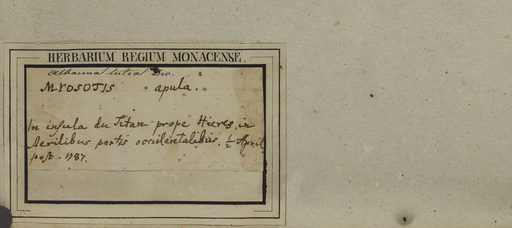 HERBARIUM REGIUM MONACENSE.
Alkanna lutea Dec.
MYOSOTIS apula.
In insula du Titan prope Hieres, in
sterilibus partis occidentalibus. ½ April
post. 1787.